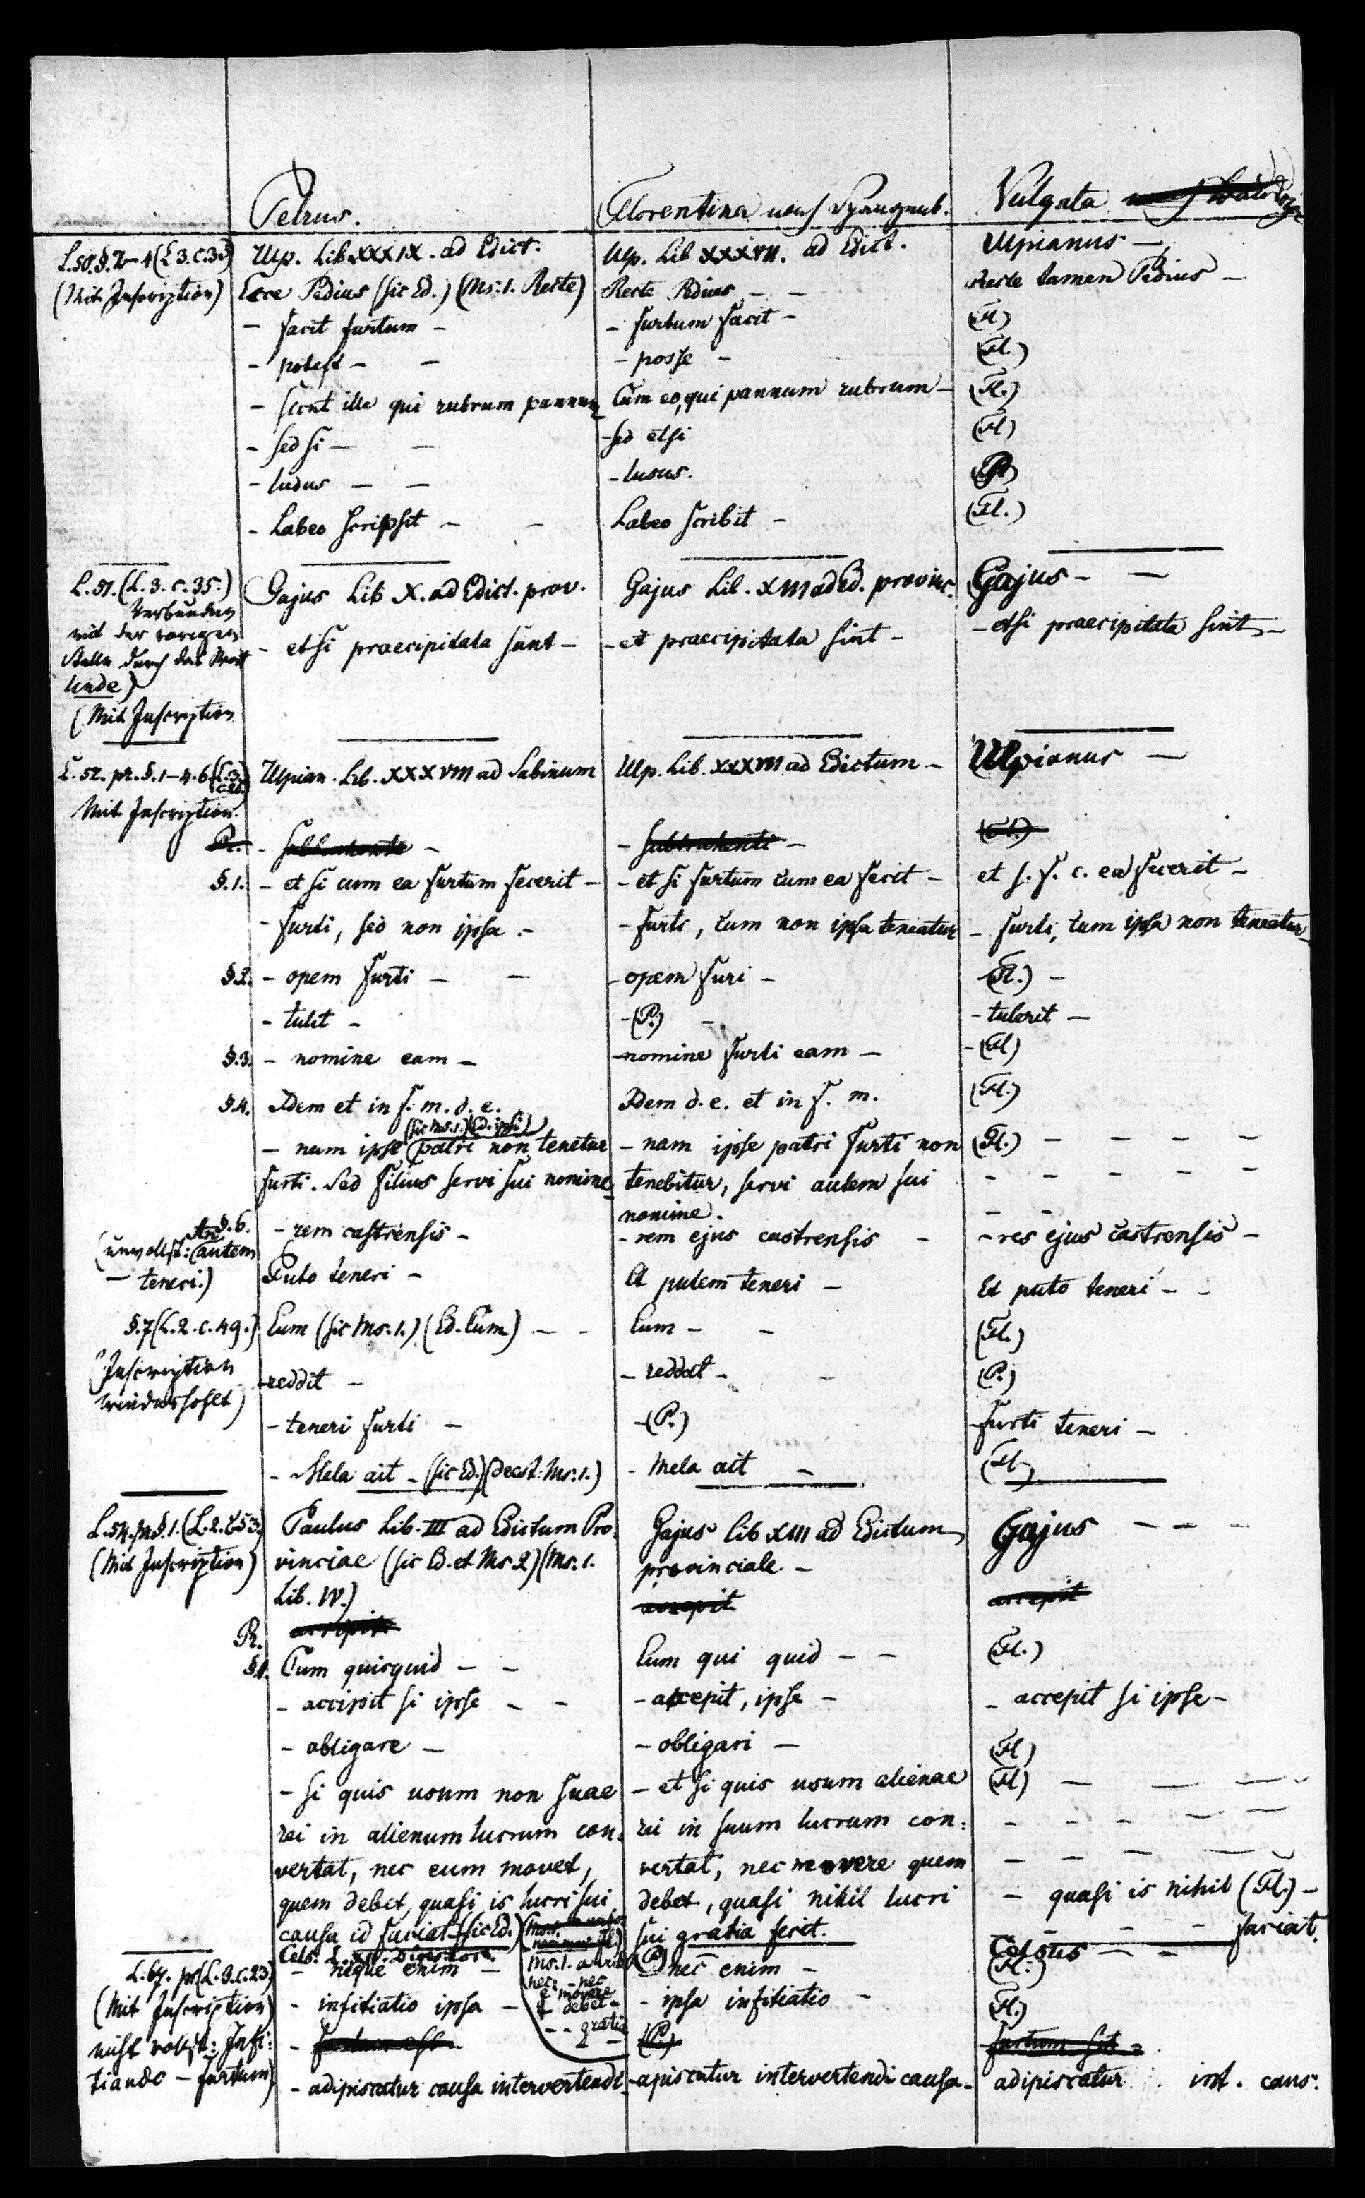 Petrus. Florentina nach Spangenb. Vulgata
L. 50. §. 2-4 (L 3. c. 35) Ulp. Lib XXXIX. ad Edict. Ulp. Lib XXXVII. ad Edict. Ulpianus -
(Mit Inscription) Ecce Pedius (sic Ed.) (Ms. 1. Recte) Recte Pedius - - Recte tamen Pedius -
- facit furtum - - furtum facit - (Fl)
- potest - - - posse - (Fl.)
- sicut ille qui rubrum pannum Cum eo, qui pannum rubrum - (Fl.)
- sed si - - - sed etsi (Fl)
- ludus - - - lusus. (Fl)
- Labeo scripsit - - Labeo scribit - (Fl.)
L. 51. (L. 3. c. 35.) Gajus Lib X. ad Edict. prov. Gajus Lib. XIII ad Ed. provinc. Gajus - -
Verbunden
mit der vorigen - etsi praecipitata sunt - - et praecipitata sint - - etsi praecipitata sint -
Stelle durch das Wort
Unde)
(Mit Inscription
L. 52. pr. §. 1-4. 6 (L. 3. Ulpian. Lib. XXXVIII ad Sabinum Ulp. Lib. XXXVII ad Edictum - Ulpianus -
Mit Inscription.
Pr. - - - subtrahenti - (Fl.)
§. 1. - et si cum ea furtum fecerit - - et si furtum cum ea fecit - et s. f. c. ea fecerit -
- furti, sed non ipsa - - furti, cum non ipsa teneatur - furti, cum ipsa non teneatur -
§. 2. - opem furti - - - opem furi - (Fl.) -
- tulit - - (P.) - - tulerit -
§. 3. - nomine eam - - nomine furti eam - - (Fl)
§. 4. Idem et in f. m. d. e. Idem d. e. et in f. m. (Fl.)
(sic Ms. 1.) (Ed. ipsi)
- nam ipse patri non tenetur - nam ipse patri furti non (Fl.) - - - -
furti. Sed filius servi sui nomine tenebitur, servi autem sui - - - - -
nomine. - -
§. 6. - rem castrensis - - rem ejus castrensis - - res ejus castrensis -
(unvollst: An autem
- teneri.) Puto teneri - Et putem teneri - Et puto teneri - -
§. 7 (L. 2. c. 49.) Eum (sic Ms. 1.) (Ed. Cum) - - Eum - - (Fl.)
Inscription - reddit - - reddat - - (P.)
wiederholet)
- teneri furti - - (P.) furti teneri -
- Mela ait - (sic Ed.) (deest. Ms. 1.) - Mela ait - (Fl)
L. 54. pr §. 1. (L. 2. c 53) Paulus Lib. III ad Edictum Pro- Gajus Lib XIII ad Edictum Gajus - - -
(Mit Inscription) vinciae (sic Ed. et Ms. 2) (Ms. 1. provinciale -
Lib. IV.) accepit accepit
Pr. accipit
§. 1. Tum quisquid - - Eum qui quid - - (Fl.)
- accipit si ipse - - - accepit, ipse - - accepit si ipse -
- obligare - - obligari - (Fl)
- si quis usum non suae - et si quis usum alienae (Fl) - - -
rei in alienum lucrum con- rei in suum lucrum con: - - - - -
vertat, nec eum movet, vertat, nec movere quem - - - - -
quem debet, quasi is lucri sui debet, quasi nihil lucri - quasi is nihil (Fl.) -
causa id faciat (sic Ed.) sui gratia fecit. - - - - faciat.
Cels. Celsus - -
L. 67. pr (L. 3. c. 23) - neque enim - (P.) nec enim - (Fl.)
(Mit Inscription) - infitiatio ipsa - - ipsa infitiatio - (Fl.)
nicht vollst: Infi- - furtum est - (P.) furtum fit -
tiando - furtum) - adipiscatur causa intervertendi - apiscatur intervertendi causa - adipiscatur int. caus: